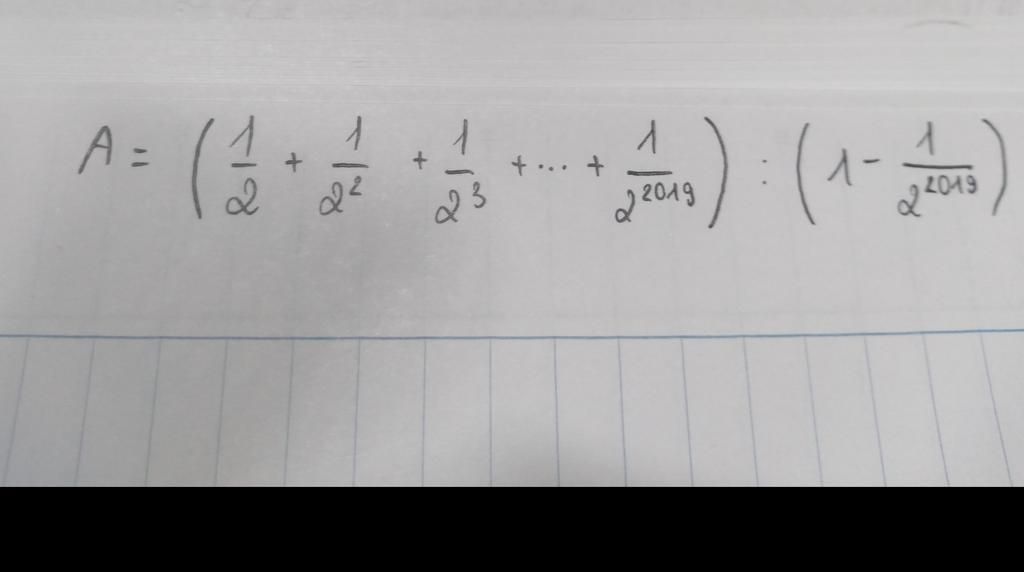 A = (1/2 + 1/2² + 1/2³ + ... + 1/2²⁰¹⁹) : (1 - 1/2²⁰¹⁹)